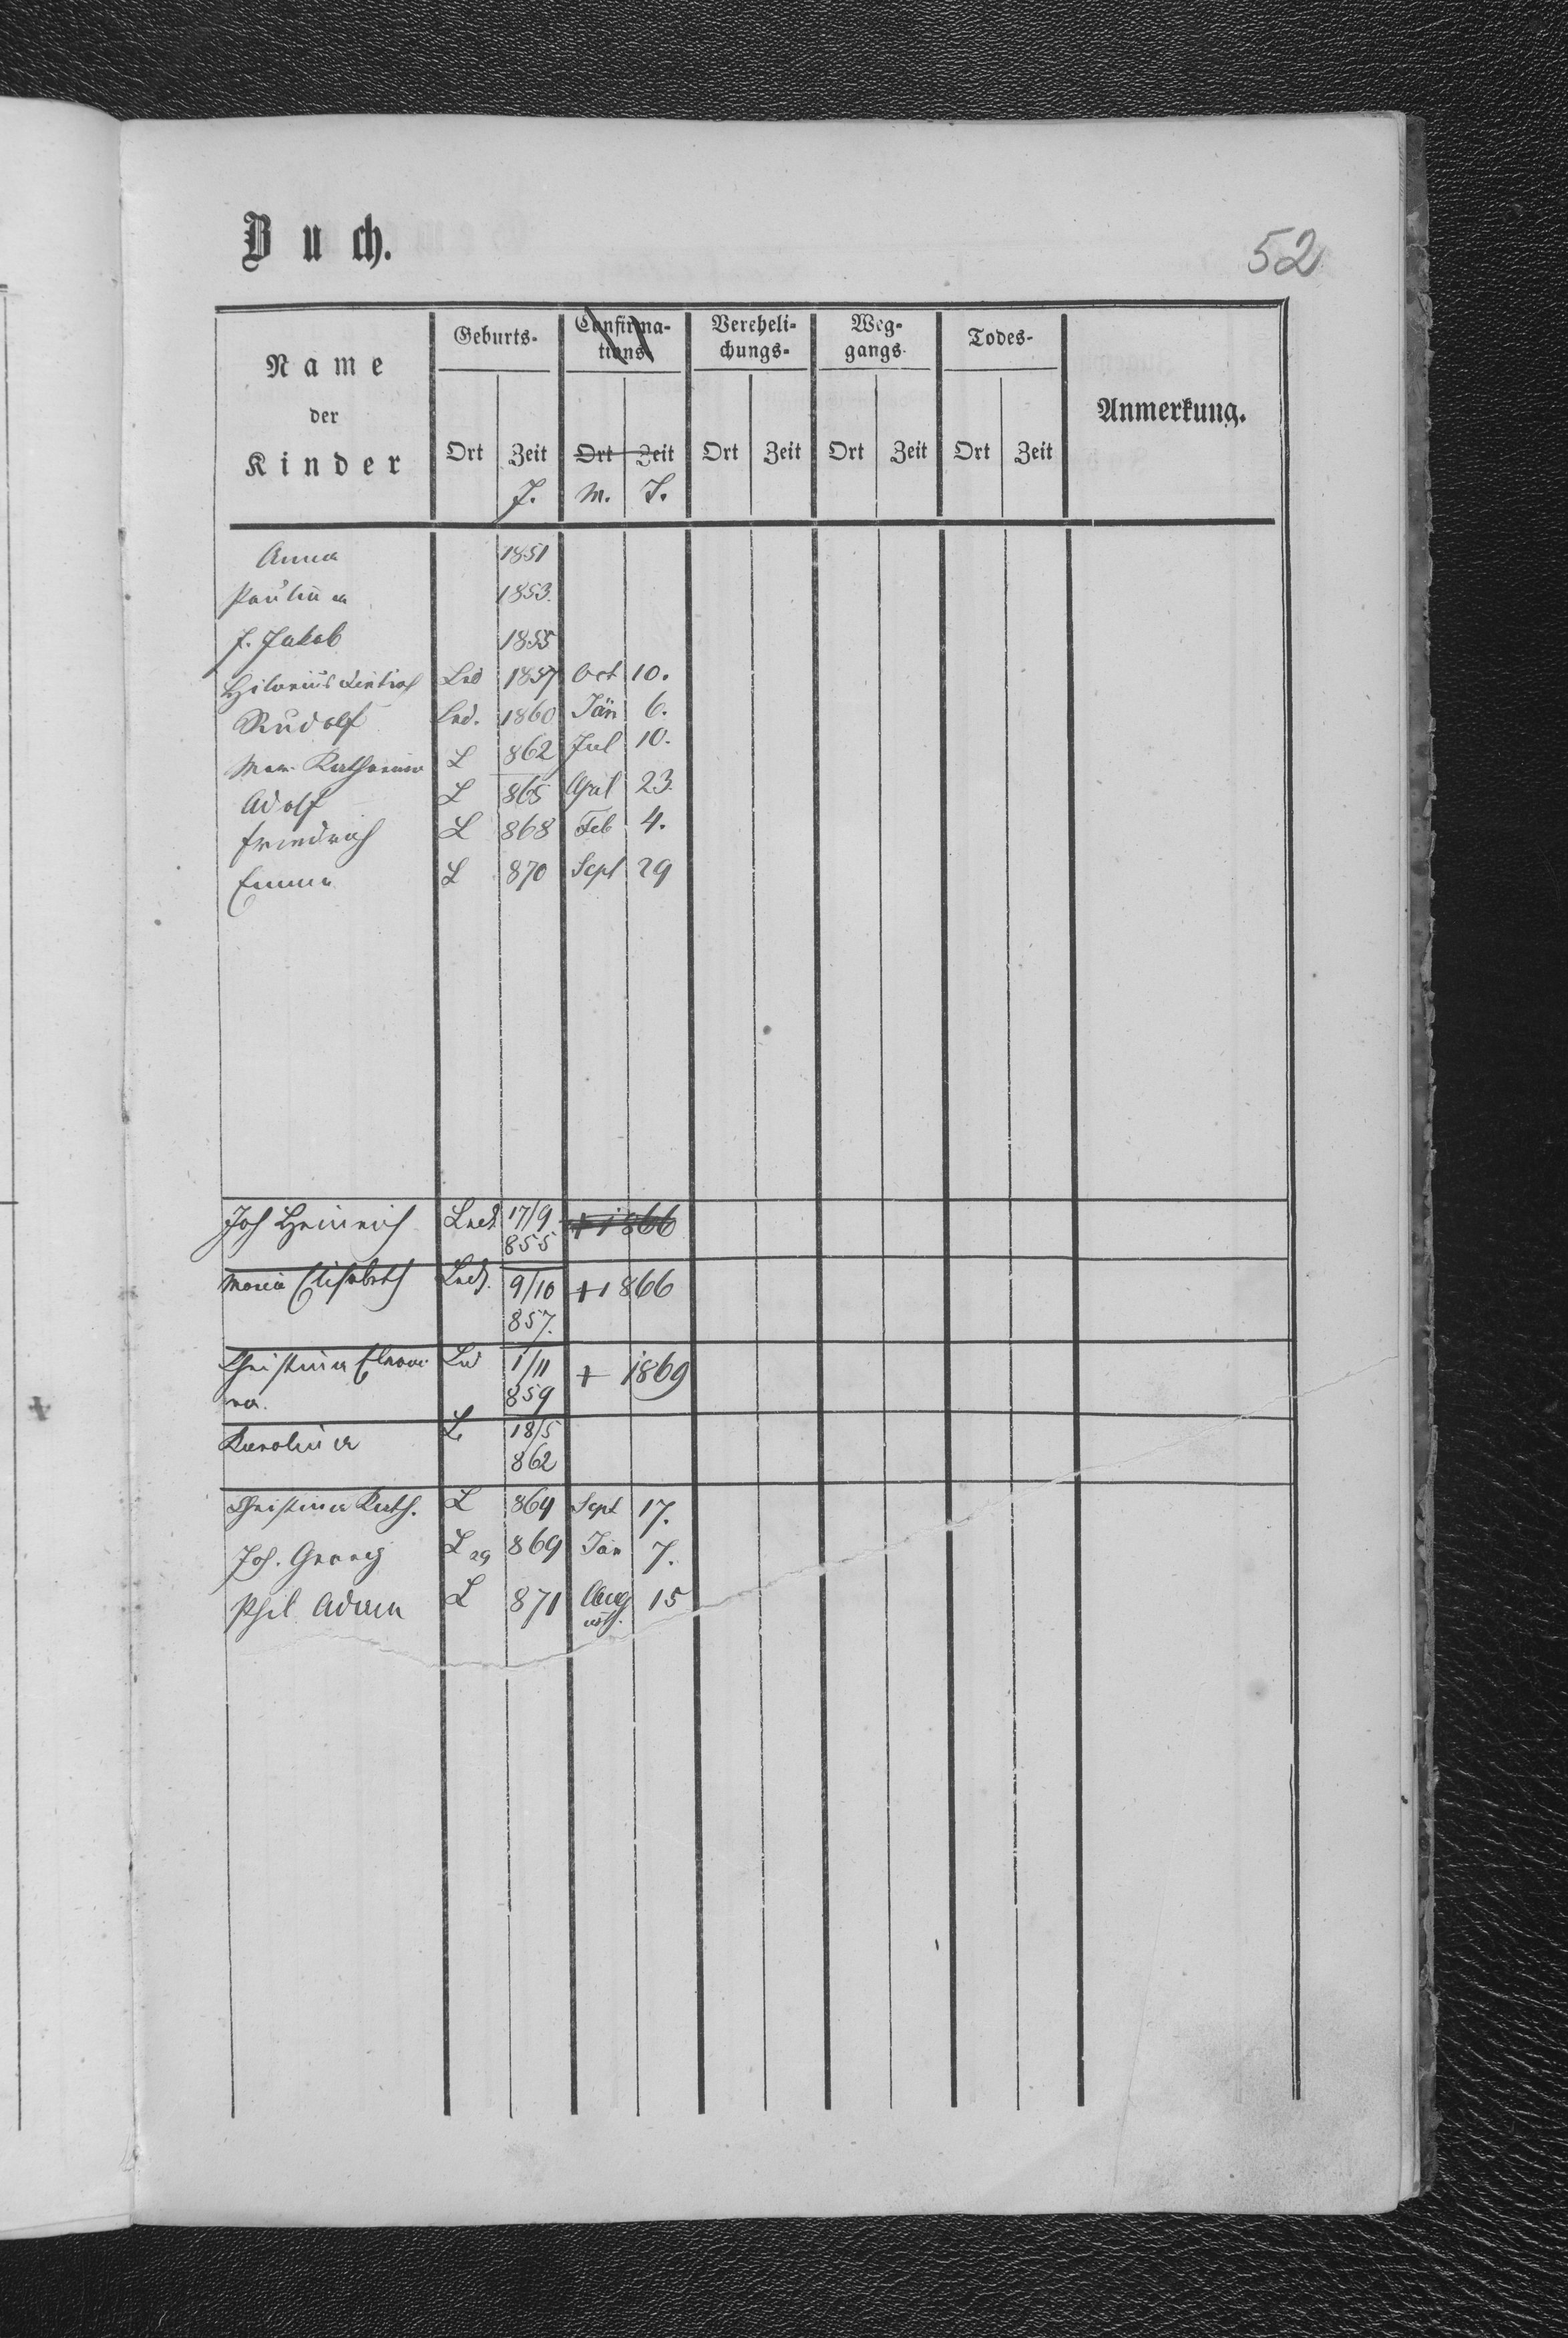 Buch.
52
Name der Kinder
Geburts-
Confirma-
tions-
Vereheli-
chungs-
Weg-
gangs-
Todes-
Anmerkung.
Ort Zeit Ort Zeit Ort Zeit Ort Zeit Ort Zeit
J. M. T.
Anna 1851
Paulina 1853.
J. Jakob 1855
1857 Oct 10.
Rudolf Lnd. 1860 Jän 6.
Mar. Katharina L 862 Jul 10.
Adolf L 865 April 23.
Friedrich L 868 Feb 4.
Emma L 870 Sept 29
Joh Heinrich 17/9 + 1866
855
Maria Elisabeth 9/10 + 1866
857.
Christina Eleono- 1/11 + 1869
ra. 859
Karolina L 18/5
862
Christina Kath. L 864 Sept 17.
Joh. Georg L 869 Jän 7.
Phil Adam L 871 Aug 15